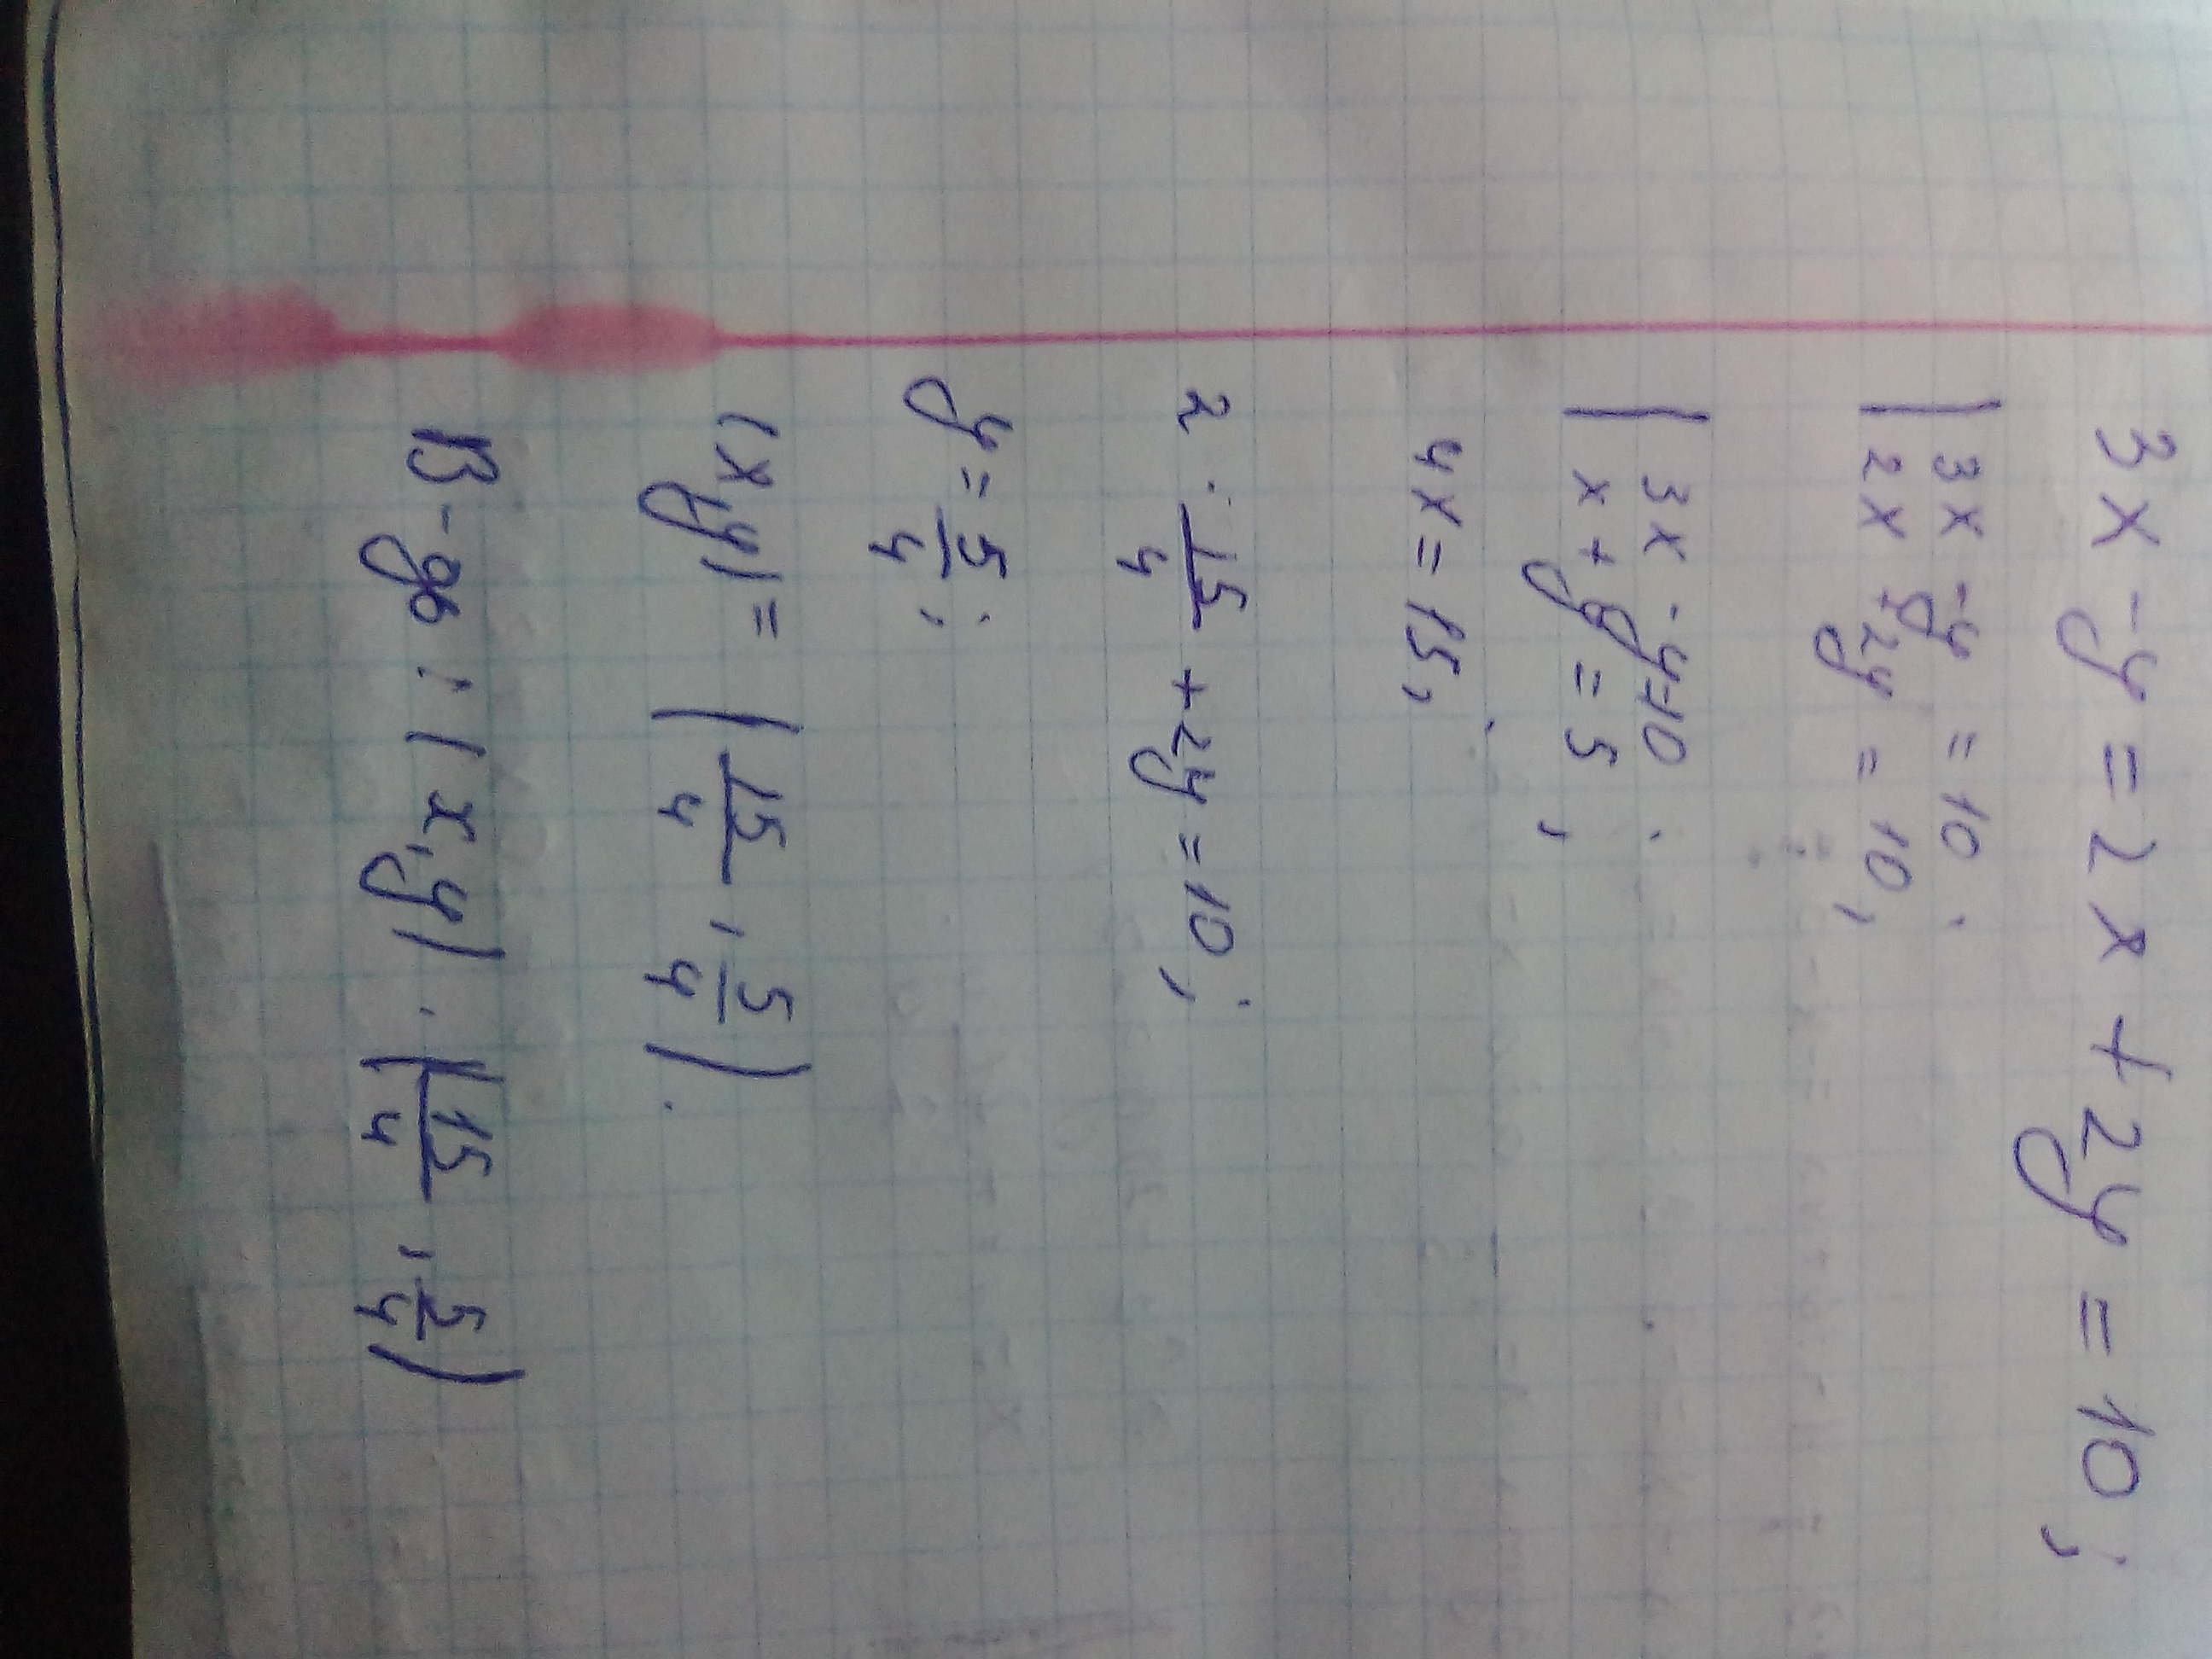 3x - y = 2x + 2y = 10;
3x - y = 10;
2x + 2y = 10,
3x - y = 10;
x + y = 5,
4x = 15,
2 · 15/4 + 2y = 10;
y = 5/4;
(x,y) = (15/4, 5/4).
В-дь: (x,y). (15/4, 5/4)